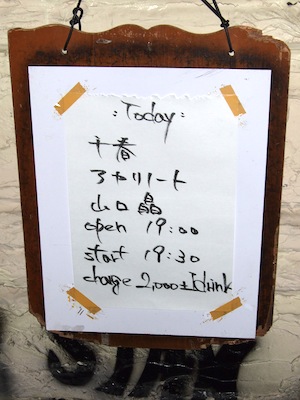 :Today:
千春
山口晶
open 19:00
start 19:30
charge 2,000+1drink